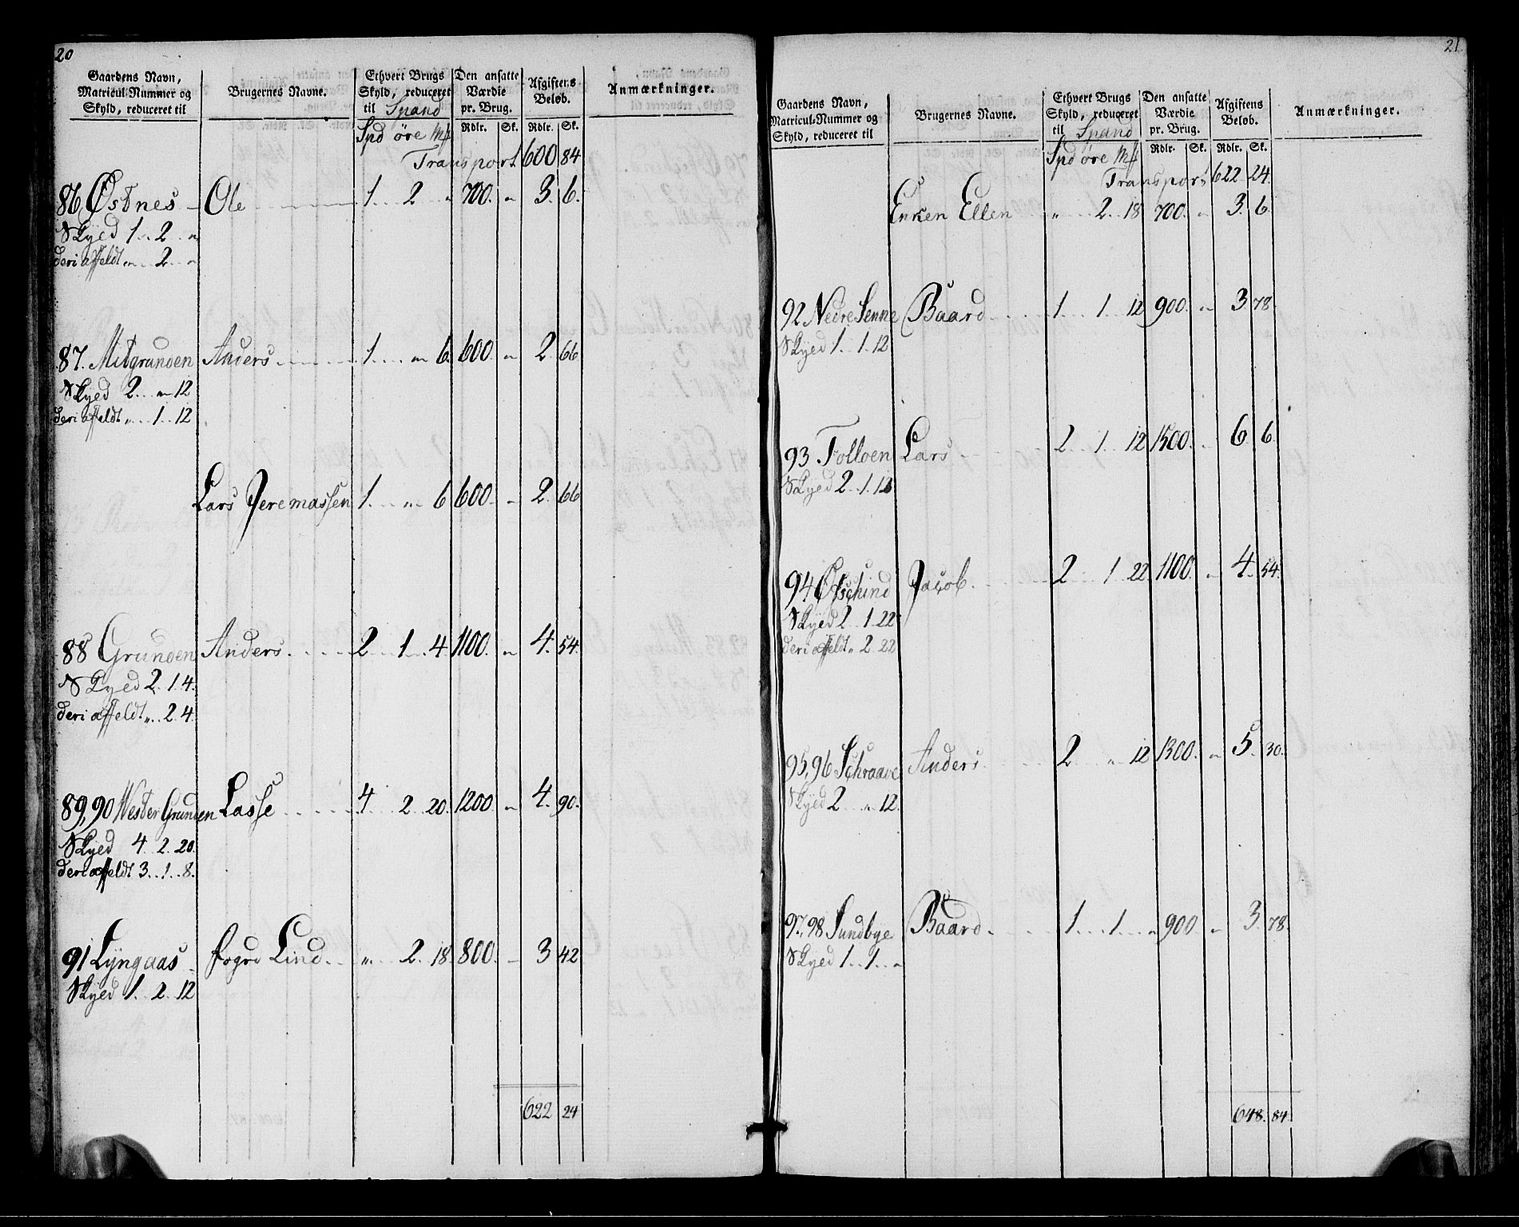 20
Gaardens Navn, Matricul-Nummer og Skyld, reduceret til
Brugernes Navne.
Ethvert Brugs Skyld, reduceret til Spand
Den ansatte Værdie pr. Brug.
Afgiftens Beløb.
Anmærkninger.
Spd øre Mk Rdlr. Sk. Rdlr. Sk.
Transport 600 84
86 Østnes Ole 1 2 " 700. " 3. 6.
Skyed 1 . 2 . "
deri affeldt " . 2 . "
87. Mitgrunden Anders 1 . " 6. 600. " 2. 66
Skyed 2 . " 12
deri affeldt " . 1 . 12
Lars Jeremassen 1 . " 6 600. " 2. 66
88 Grunden Anders 2 1 . 4. 1100. " 4. 54.
Skyed 2 . 1 4.
deri affeldt " . 2 4.
89, 90 Wester Grunden Lasse 4 . 2 . 20. 1200. " 4. 90.
Skyed 4 . 2 . 20.
deri affeldt 3 . 1 . 8.
91 Lyngaas Fogd Lind " . 2 . 18. 800. " 3 42
Skyed 1 . 2 . 12
622 24
21
Gaardens Navn, Matricul-Nummer og Skyld, reduceret til
Brugernes Navne.
Ethvert Brugs Skyld, reduceret til Spand
Den ansatte Værdie pr. Brug.
Afgiftens Beløb.
Anmærkninger.
Spd øre Mk Rdlr. Sk. Rdlr. Sk.
Transport 622 24
Enken Ellen " . 2 . 18 700. " 3. 6.
92 Nedre Senne Baard 1 . 1 . 12 900. " 3 78.
Skyed 1 . 1 . 12
93. Folloen Lars 2 . 1 . 12 1500. 6. 6.
Skyed 2 . 1 . 12
94 Øschind Jacob. 2 . 1 22 1100. " 4. 54.
Skyed 2 . 1 . 22
deri affeldt " 2 22
95, 96 Schraave Anders 2 " 12 1300. " 5. 30.
Skyed 2 . " 12.
97, 98 Sundbye Baard 1 . 1 . " 900 " 3. 78.
Skyed 1 . 1 . "
648. 84.